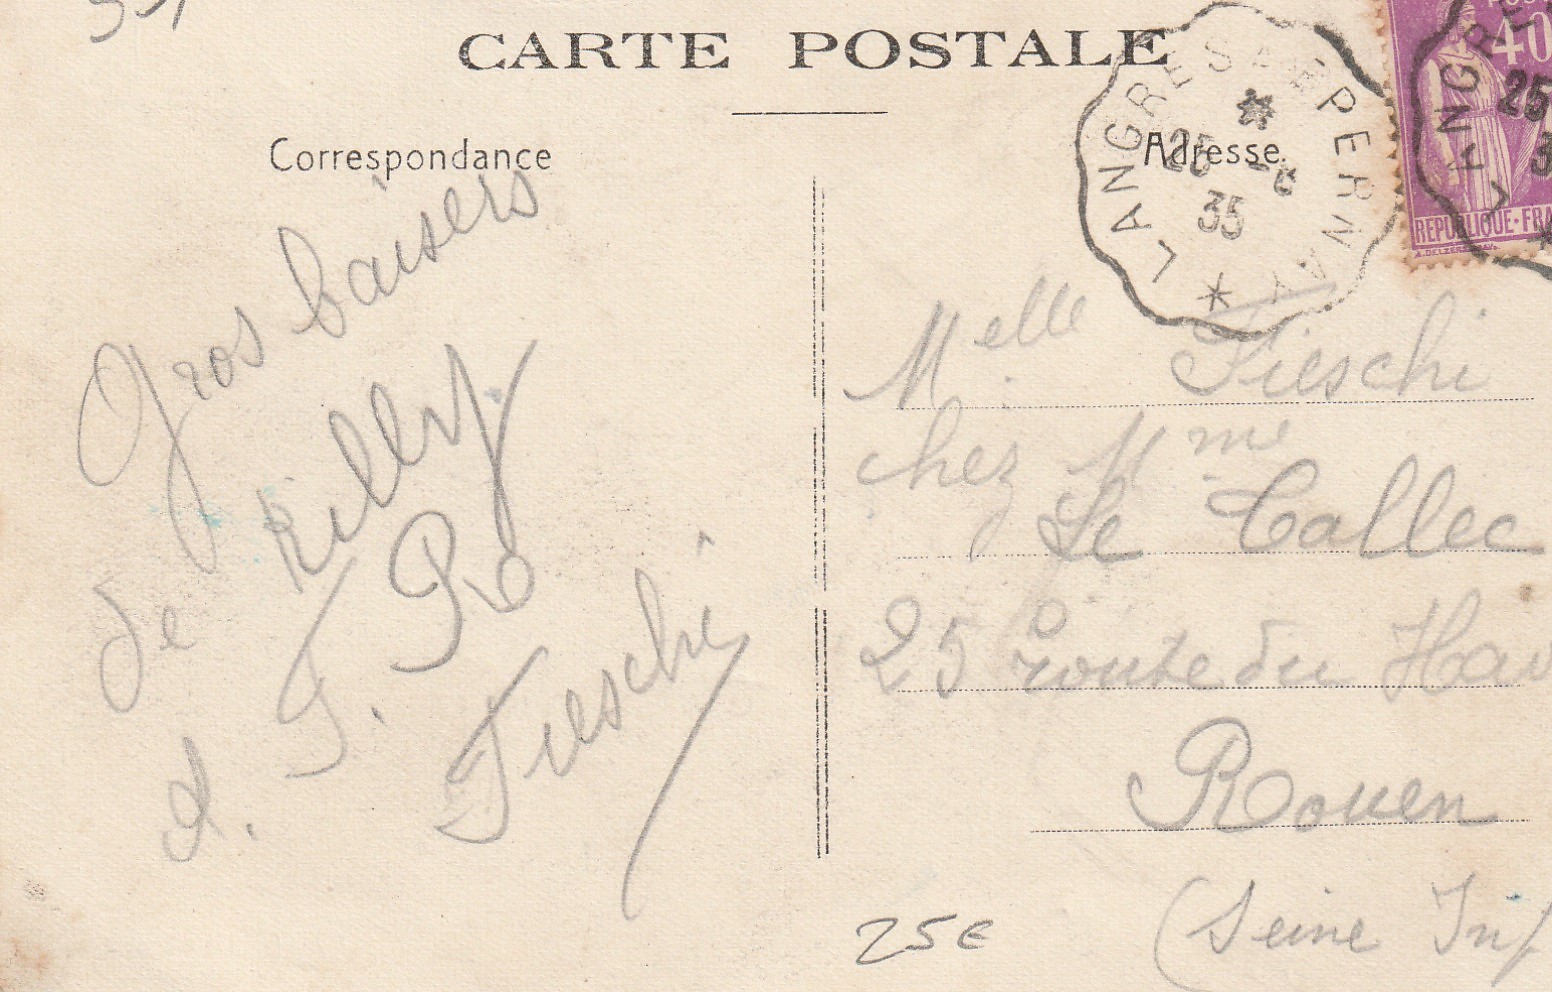 CARTE POSTALE
Correspondance
Adresse
LANGRES A EPERNAY
25 -5
35
40
REPUBLIQUE·FRA
LANGRE
25
3
Gros baisers
de Rilly
F. Ro
A. Fieschi
Melle Fieschi
chez Mme
Le Callec
25 route du Hav
Rouen
(Seine Inf
25€